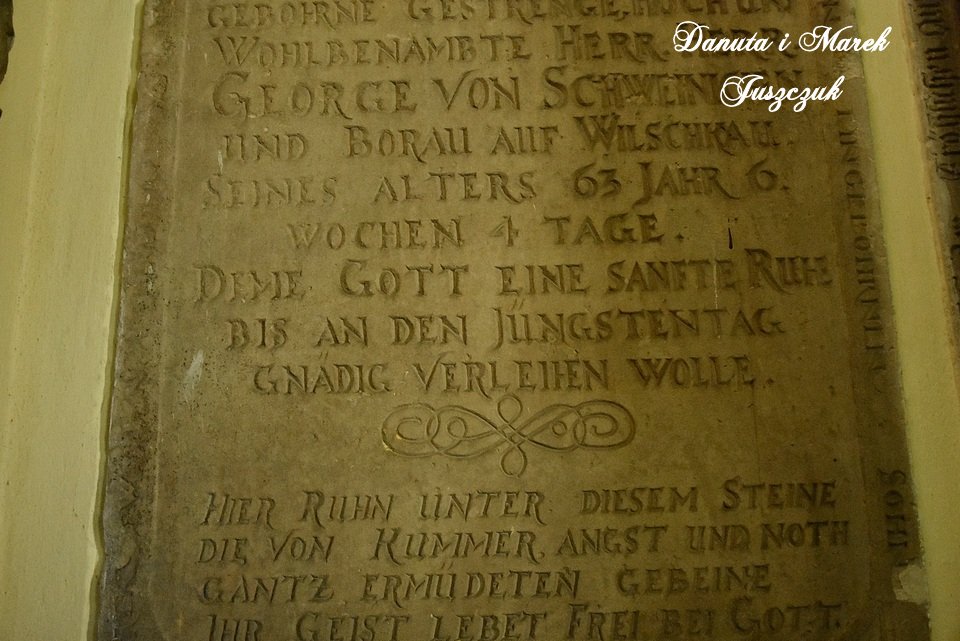 GEBOHRNE GESTRENGE, HOCH UN
WOHLBENAMBTE HERR HERR
GEORGE VON SCHWEINI
UND BORAU AUF WILSCHKAU.
SEINES ALTERS 63 JAHR 6.
WOCHEN 4 TAGE.
DEME GOTT EINE SANFTE RUHE
BIS AN DEN JÜNGSTENTAG
GNÄDIG VERLEIHEN WOLLE.
HIER RUHN UNTER DIESEM STEINE
DIE VON KUMMER, ANGST UND NOTH
GANTZ ERMÜDETEN GEBEINE
IHR GEIST LEBET FREI BEI GOTT.
Danuta i Marek
Juszczuk